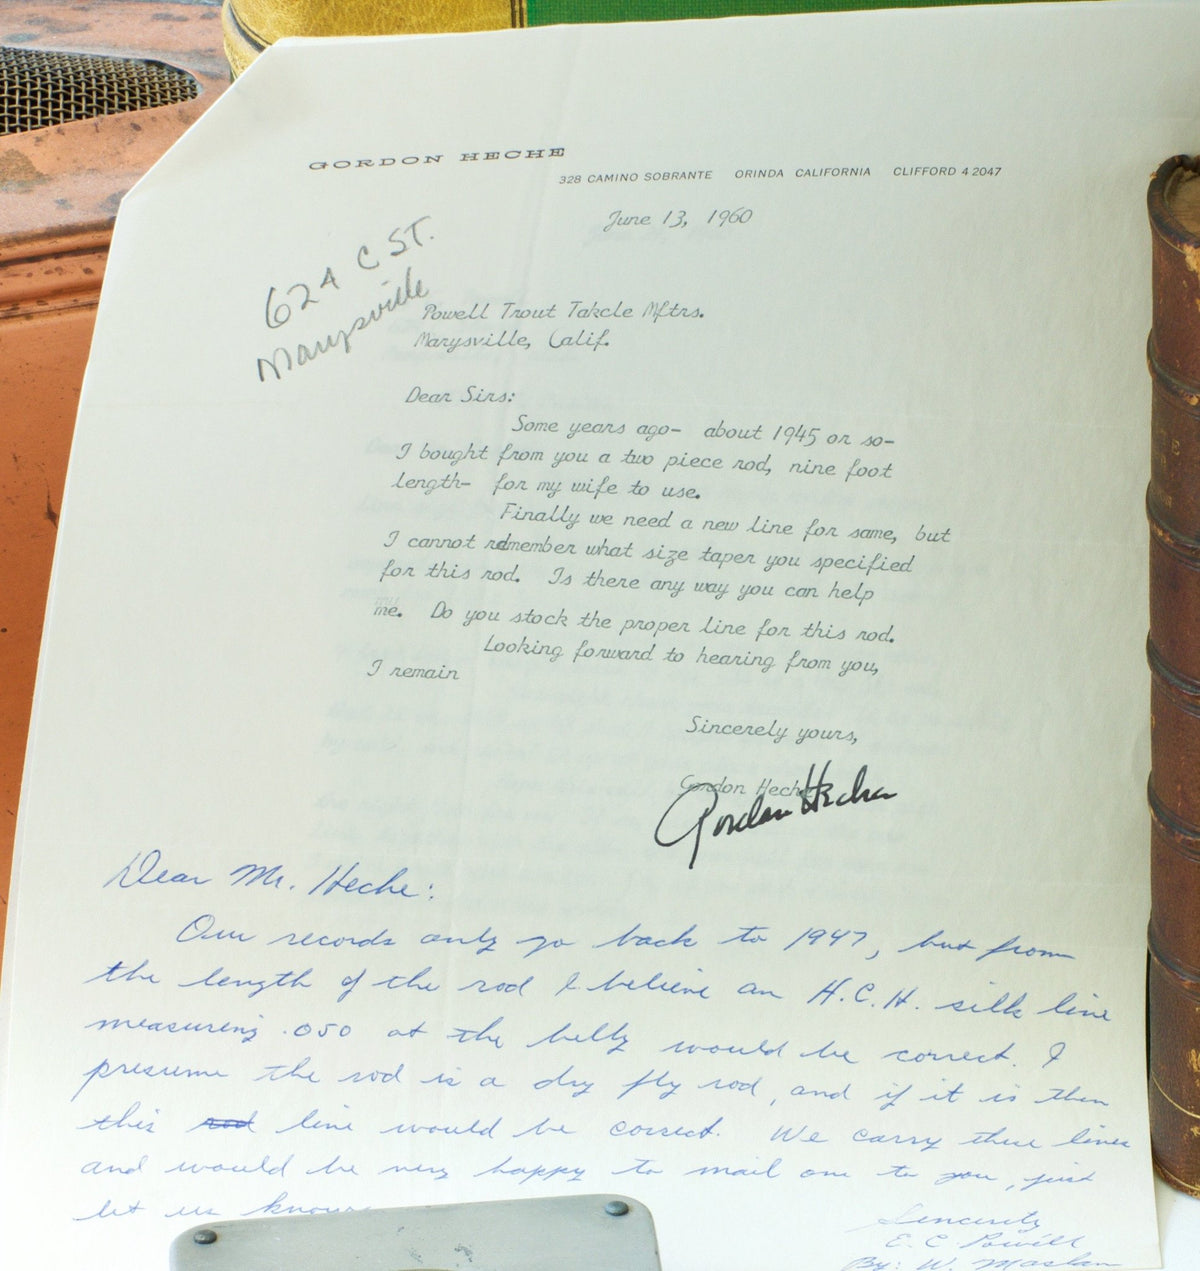 GORDON HECHE
328 CAMINO SOBRANTE ORINDA CALIFORNIA CLIFFORD 4 2047
June 13, 1960
624 C ST.
Marysville
Powell Trout Takcle Mftrs.
Marysville, Calif.
Dear Sirs:
Some years ago- about 1945 or so-
I bought from you a two piece rod, nine foot
length- for my wife to use.
Finally we need a new line for same, but
I cannot remember what size taper you specified
for this rod. Is there any way you can help
me. Do you stock the proper line for this rod.
Looking forward to hearing from you,
I remain
Sincerely yours,
Gordon Heche
Gordon Heche
Dear Mr. Heche:
Our records only go back to 1947, but from
the length of the rod I believe an H.C.H. silk line
measuring .050 at the belly would be correct. I
presume the rod is a dry fly rod, and if it is then
this rod line would be correct. We carry these lines
and would be very happy to mail one to you, just
let us know
Sincerely
E. C. Powell
By: W. Maslan